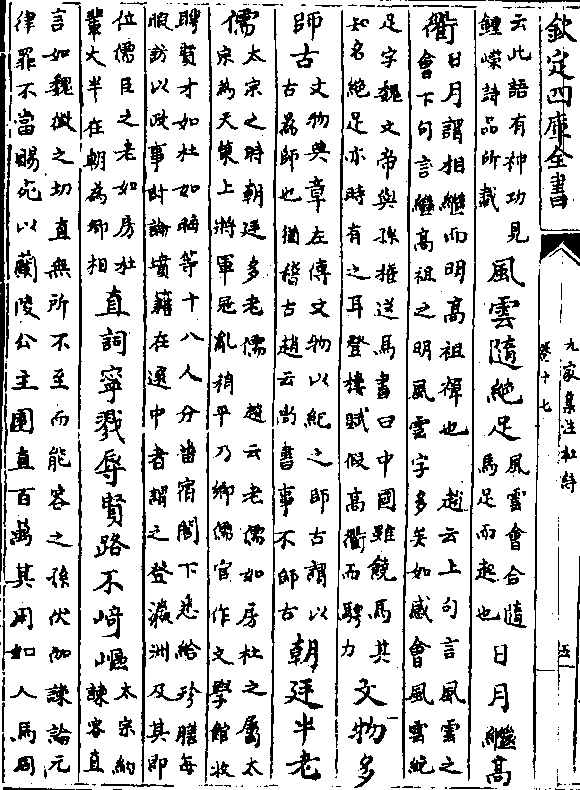 欽定四庫全書
九家集注杜詩
卷十七
五
云此語有神功見
鍾嶸詩品所載
風雲隨絶足
風雲會合隨
馬足而起也
日月繼高
衢
日月謂相繼而明高祖禪也 趙云上句言風雲之
會下句言繼高祖之明風雲字多矣如感會風雲絶
足字魏文帝與孫權送馬書曰中國雖饒馬其
知名絶足亦時有之耳登樓賦假高衢而騁力
文物多
師古
文物典章左傳文物以紀之師古謂以
古爲師也猶稽古趙云尚書事不師古
朝廷半老
儒
太宗之時朝廷多老儒 趙云老儒如房杜之屬太
宗為天策上將軍冦亂稍平乃鄉儒宫作文學館收
聘賢才如杜如晦等十八人分畨宿閣下悉給珍膳每
暇訪以政事討論墳籍在選中者謂之登瀛洲及其即
位儒臣之老如房杜
輩大半在朝為卿相
直詞寧戮辱賢路不崎嶇
太宗納
諫容直
言如魏徵之切直無所不至而能容之孫伏伽諫論元
律罪不當賜死以蘭陵公主園直百萬其用如人馬周